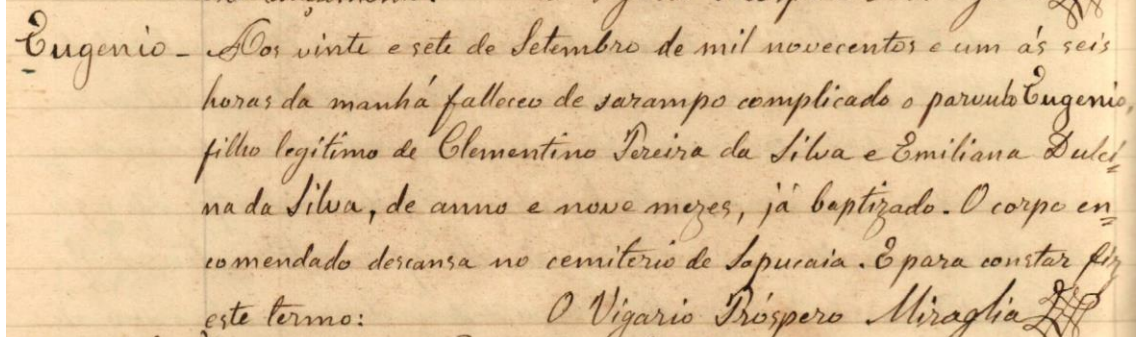 Eugenio - Aos vinte e sete de Setembro de mil novecentos e um ás seis
horas da manhá falleceo de sarampo complicado o parvulo Eugenio,
filho legitimo de Clementino Pereira da Silva e Emiliana Dulci=
na da Silva, de anno e nove mezes, já baptizado. O corpo en=
comendado descansa no cemiterio de Sapucaia. E para constar fiz
este termo: O Vigario Próspero Miraglia